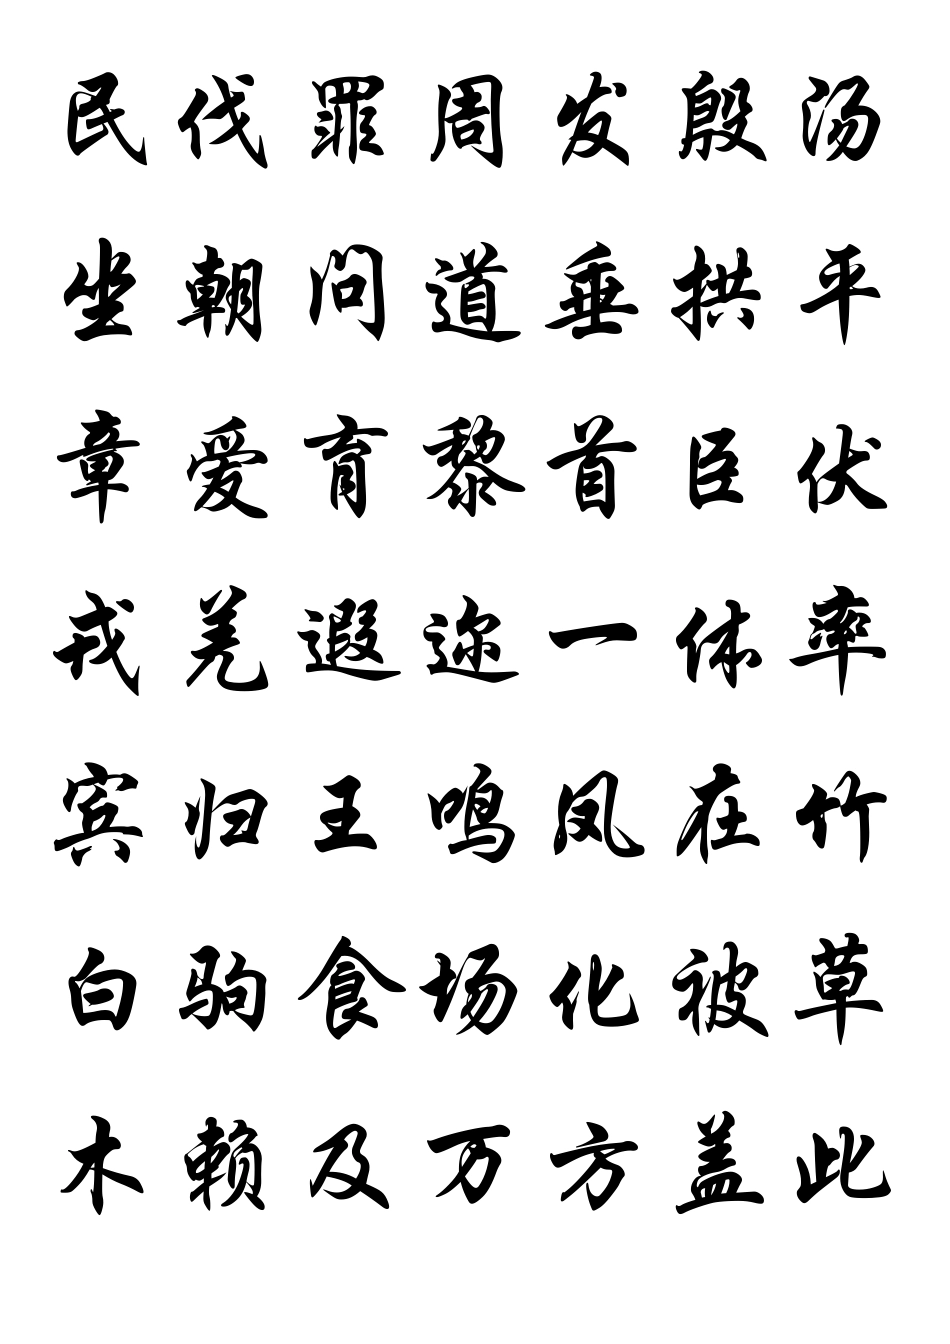 民伐罪周发殷汤
坐朝问道垂拱平
章爱育黎首臣伏
戎羌遐迩一体率
宾归王鸣凤在竹
白驹食场化被草
木赖及万方盖此